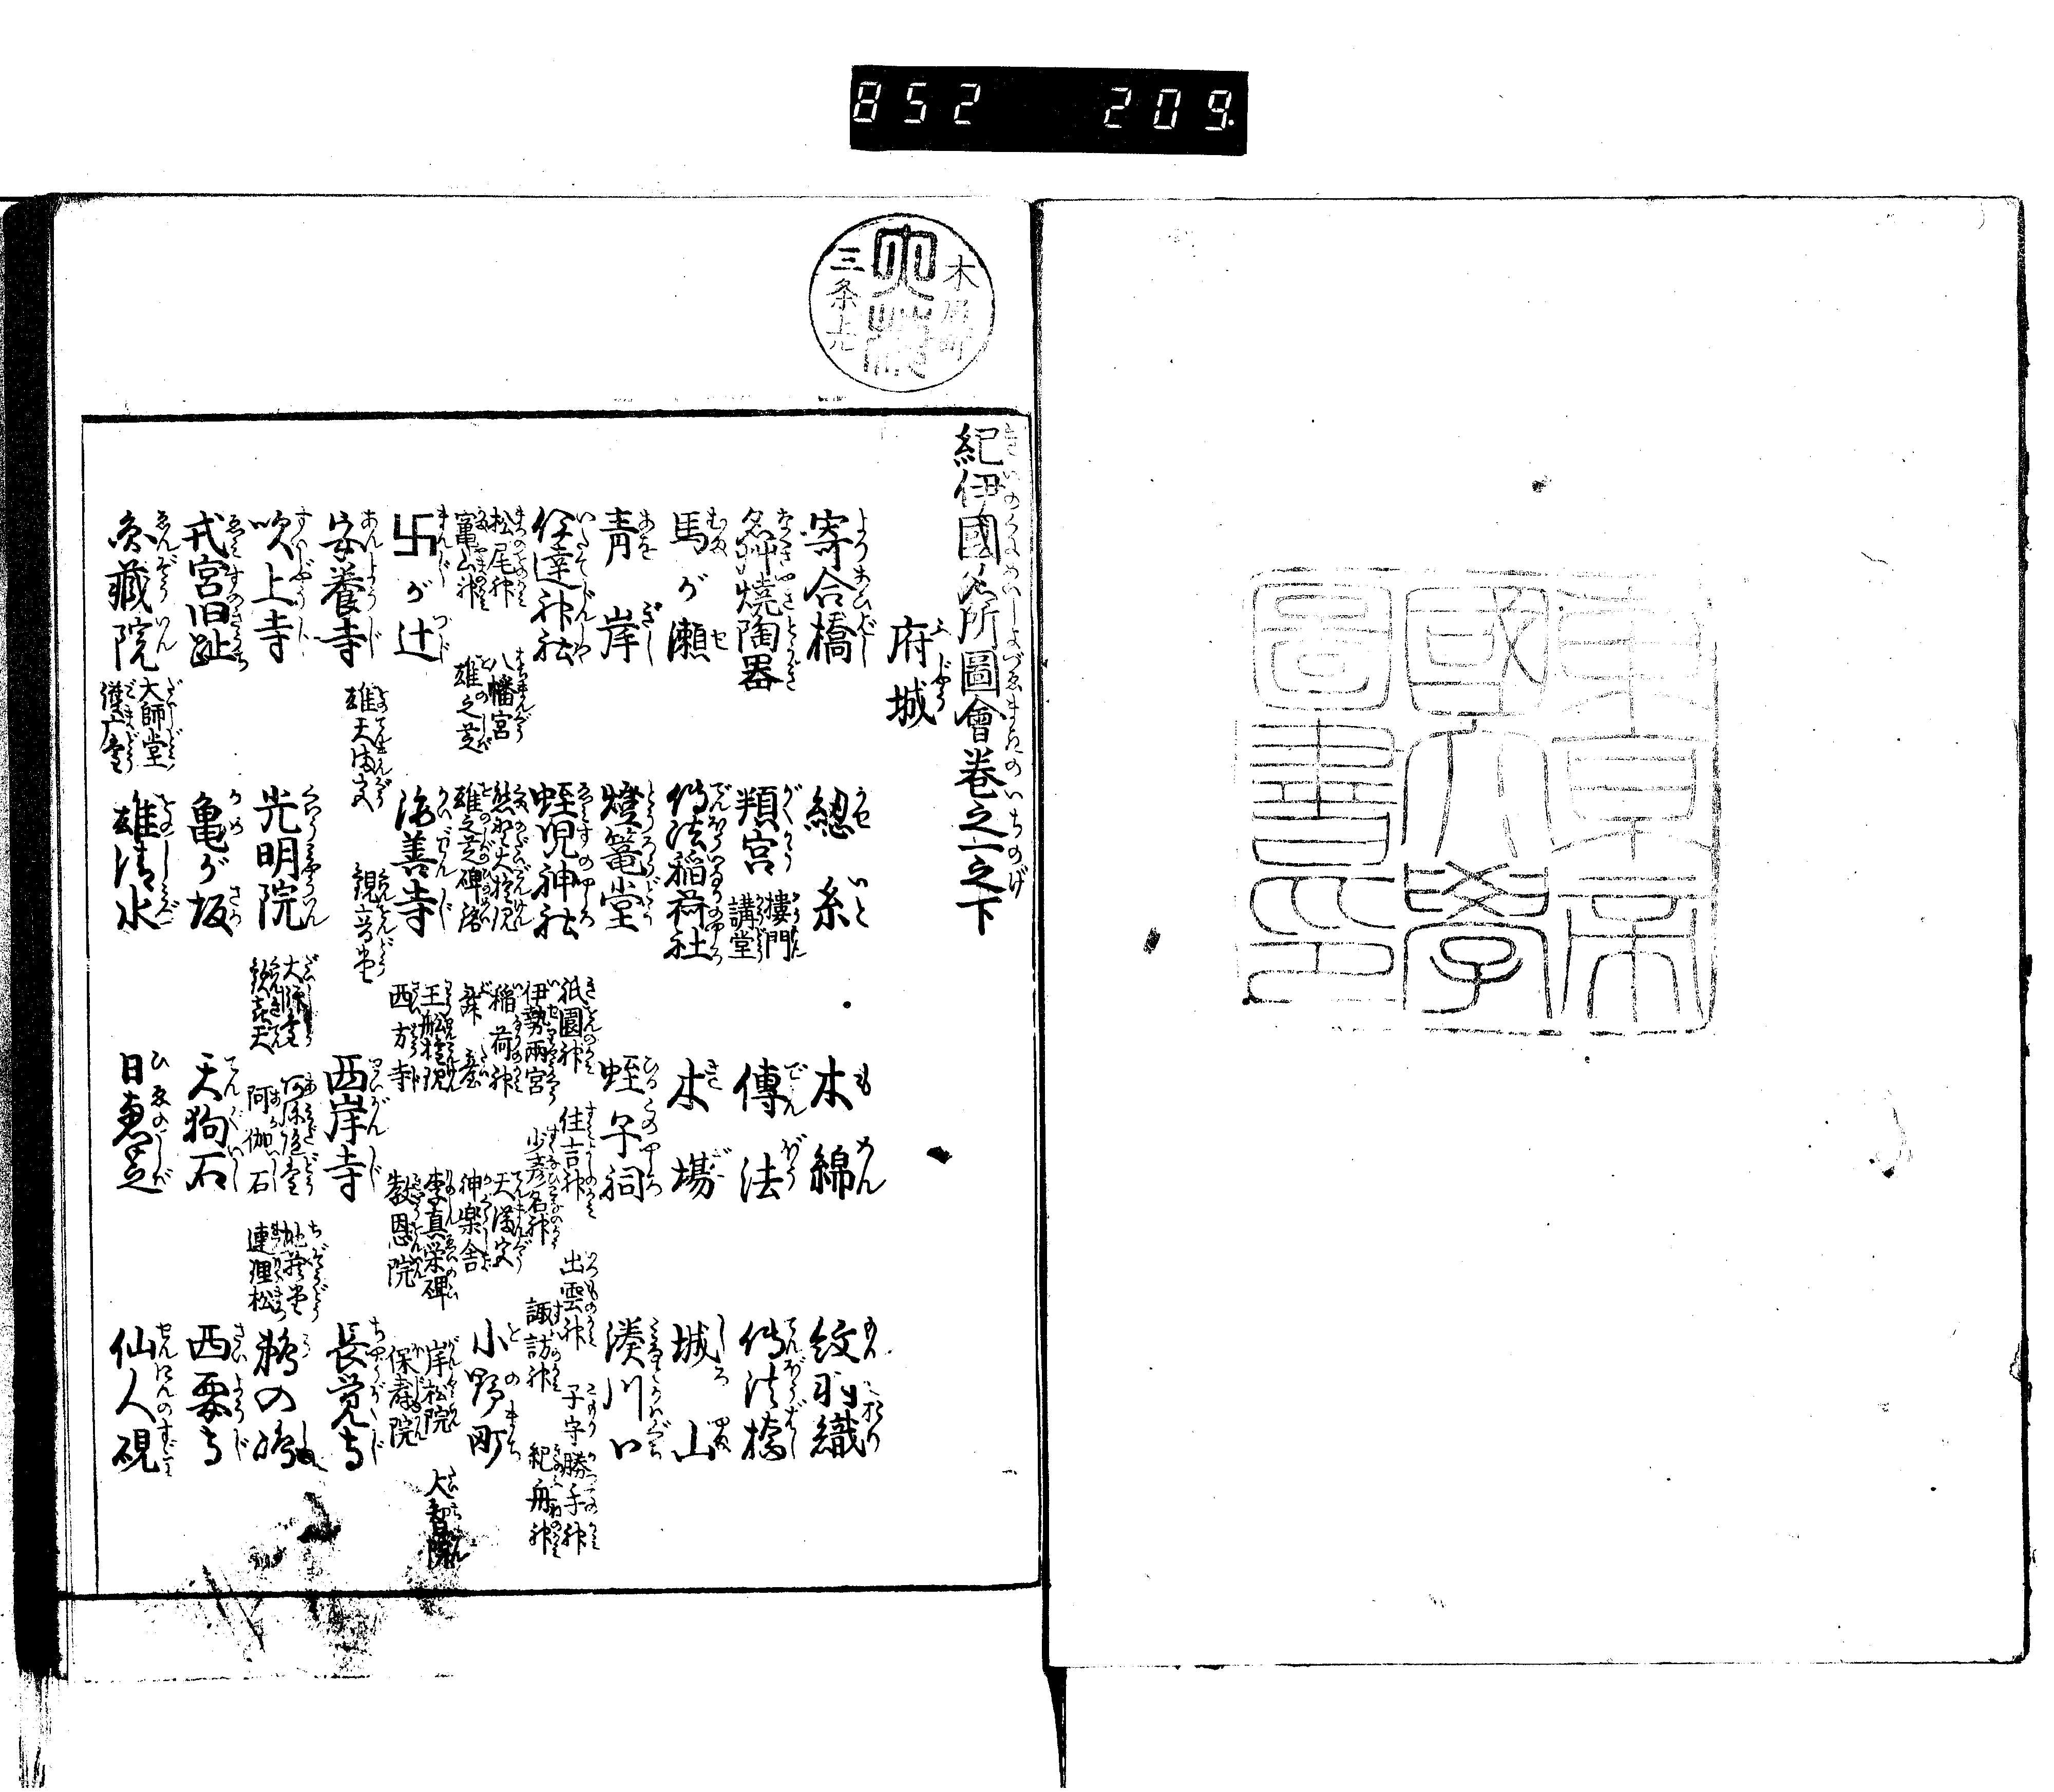 852 209
木屋町
三条上
東京帝
國大學
圖書印
紀伊國名所圖會巻之一之下
府城
寄合橋 綛糸 木綿 紋羽織
名草焼陶器 頖宮 樓門 講堂 傳法 傳法橋
馬が瀬 傳法稲荷社 木場 城山
青岸 燈篭堂 蛭子祠 湊川口
伊達神社 蛭児神社 祇園神 住吉神 出雲神 子守勝手神
伊勢両宮 少彦名神 諏訪神 紀舟神
松尾神 八幡宮 熊野大権現 稲荷神 天満宮 小野町
竃山神 雄之芝 雄之芝碑 舞臺 神楽舎
卍が辻 海善寺 王舩権現 李真栄碑 岸松院 大智院
西方寺 教恩院 保寿院
安養寺 雄天満宮 観音堂 西岸寺 長覚寺
吹上寺 光明院 大師堂 歓喜天 阿弥陀堂 阿伽石 地蔵堂 連理松 鵜の嶋
戎宮旧趾 亀が坂 天狗石 西要寺
魚藏院 大師堂 護广堂 雄清水 日恵芝 仙人硯